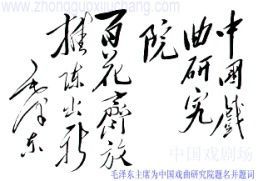 www.zhongguoxijuchang.com
中國戲
曲研究
院
百花齊放
推陳出新
毛澤东
中国戏剧场
毛泽东主席为中国戏曲研究院题名并题词